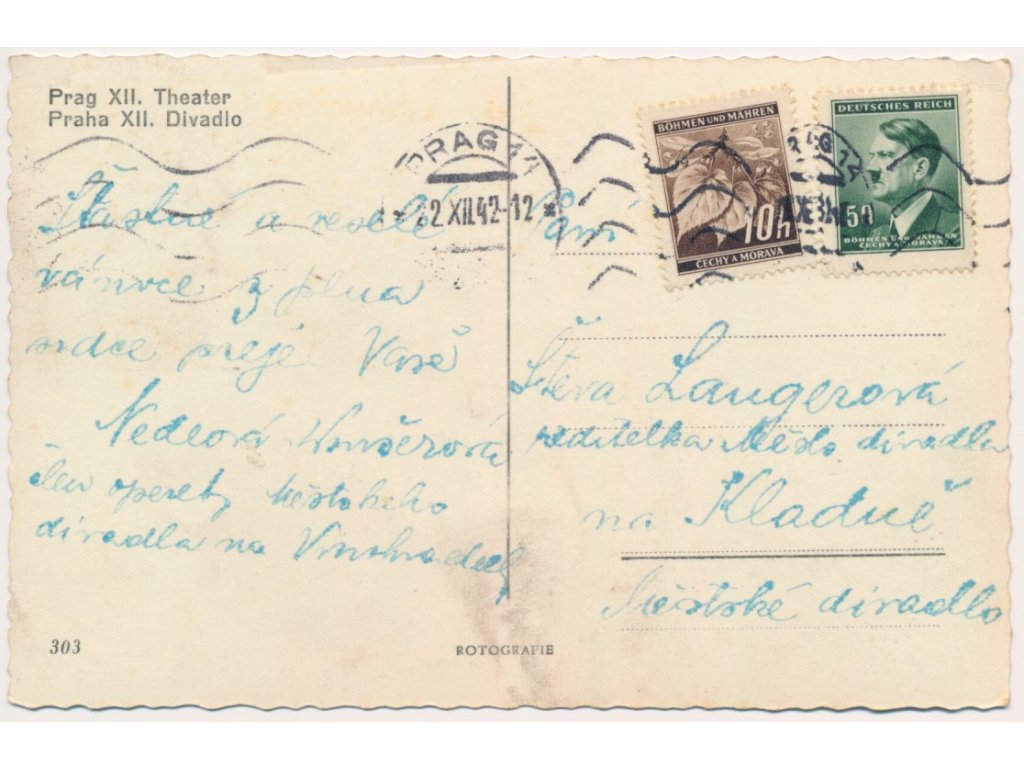 Prag XII. Theater
Praha XII. Divadlo
PRAG
22 XII 42-12
BÖHMEN UND MÄHREN
10h
ČECHY A MORAVA
DEUTSCHES REICH
50
BÖHMEN UND MÄHREN
ČECHY A MORAVA
Šťastné a veselé
vánoce z plna
srdce přeje Vaše
člen operety městského
divadla na Vinohradech
Paní
Langerová
ředitelka Město divadla
na Kladně
Městské divadlo
303
ROTOGRAFIE